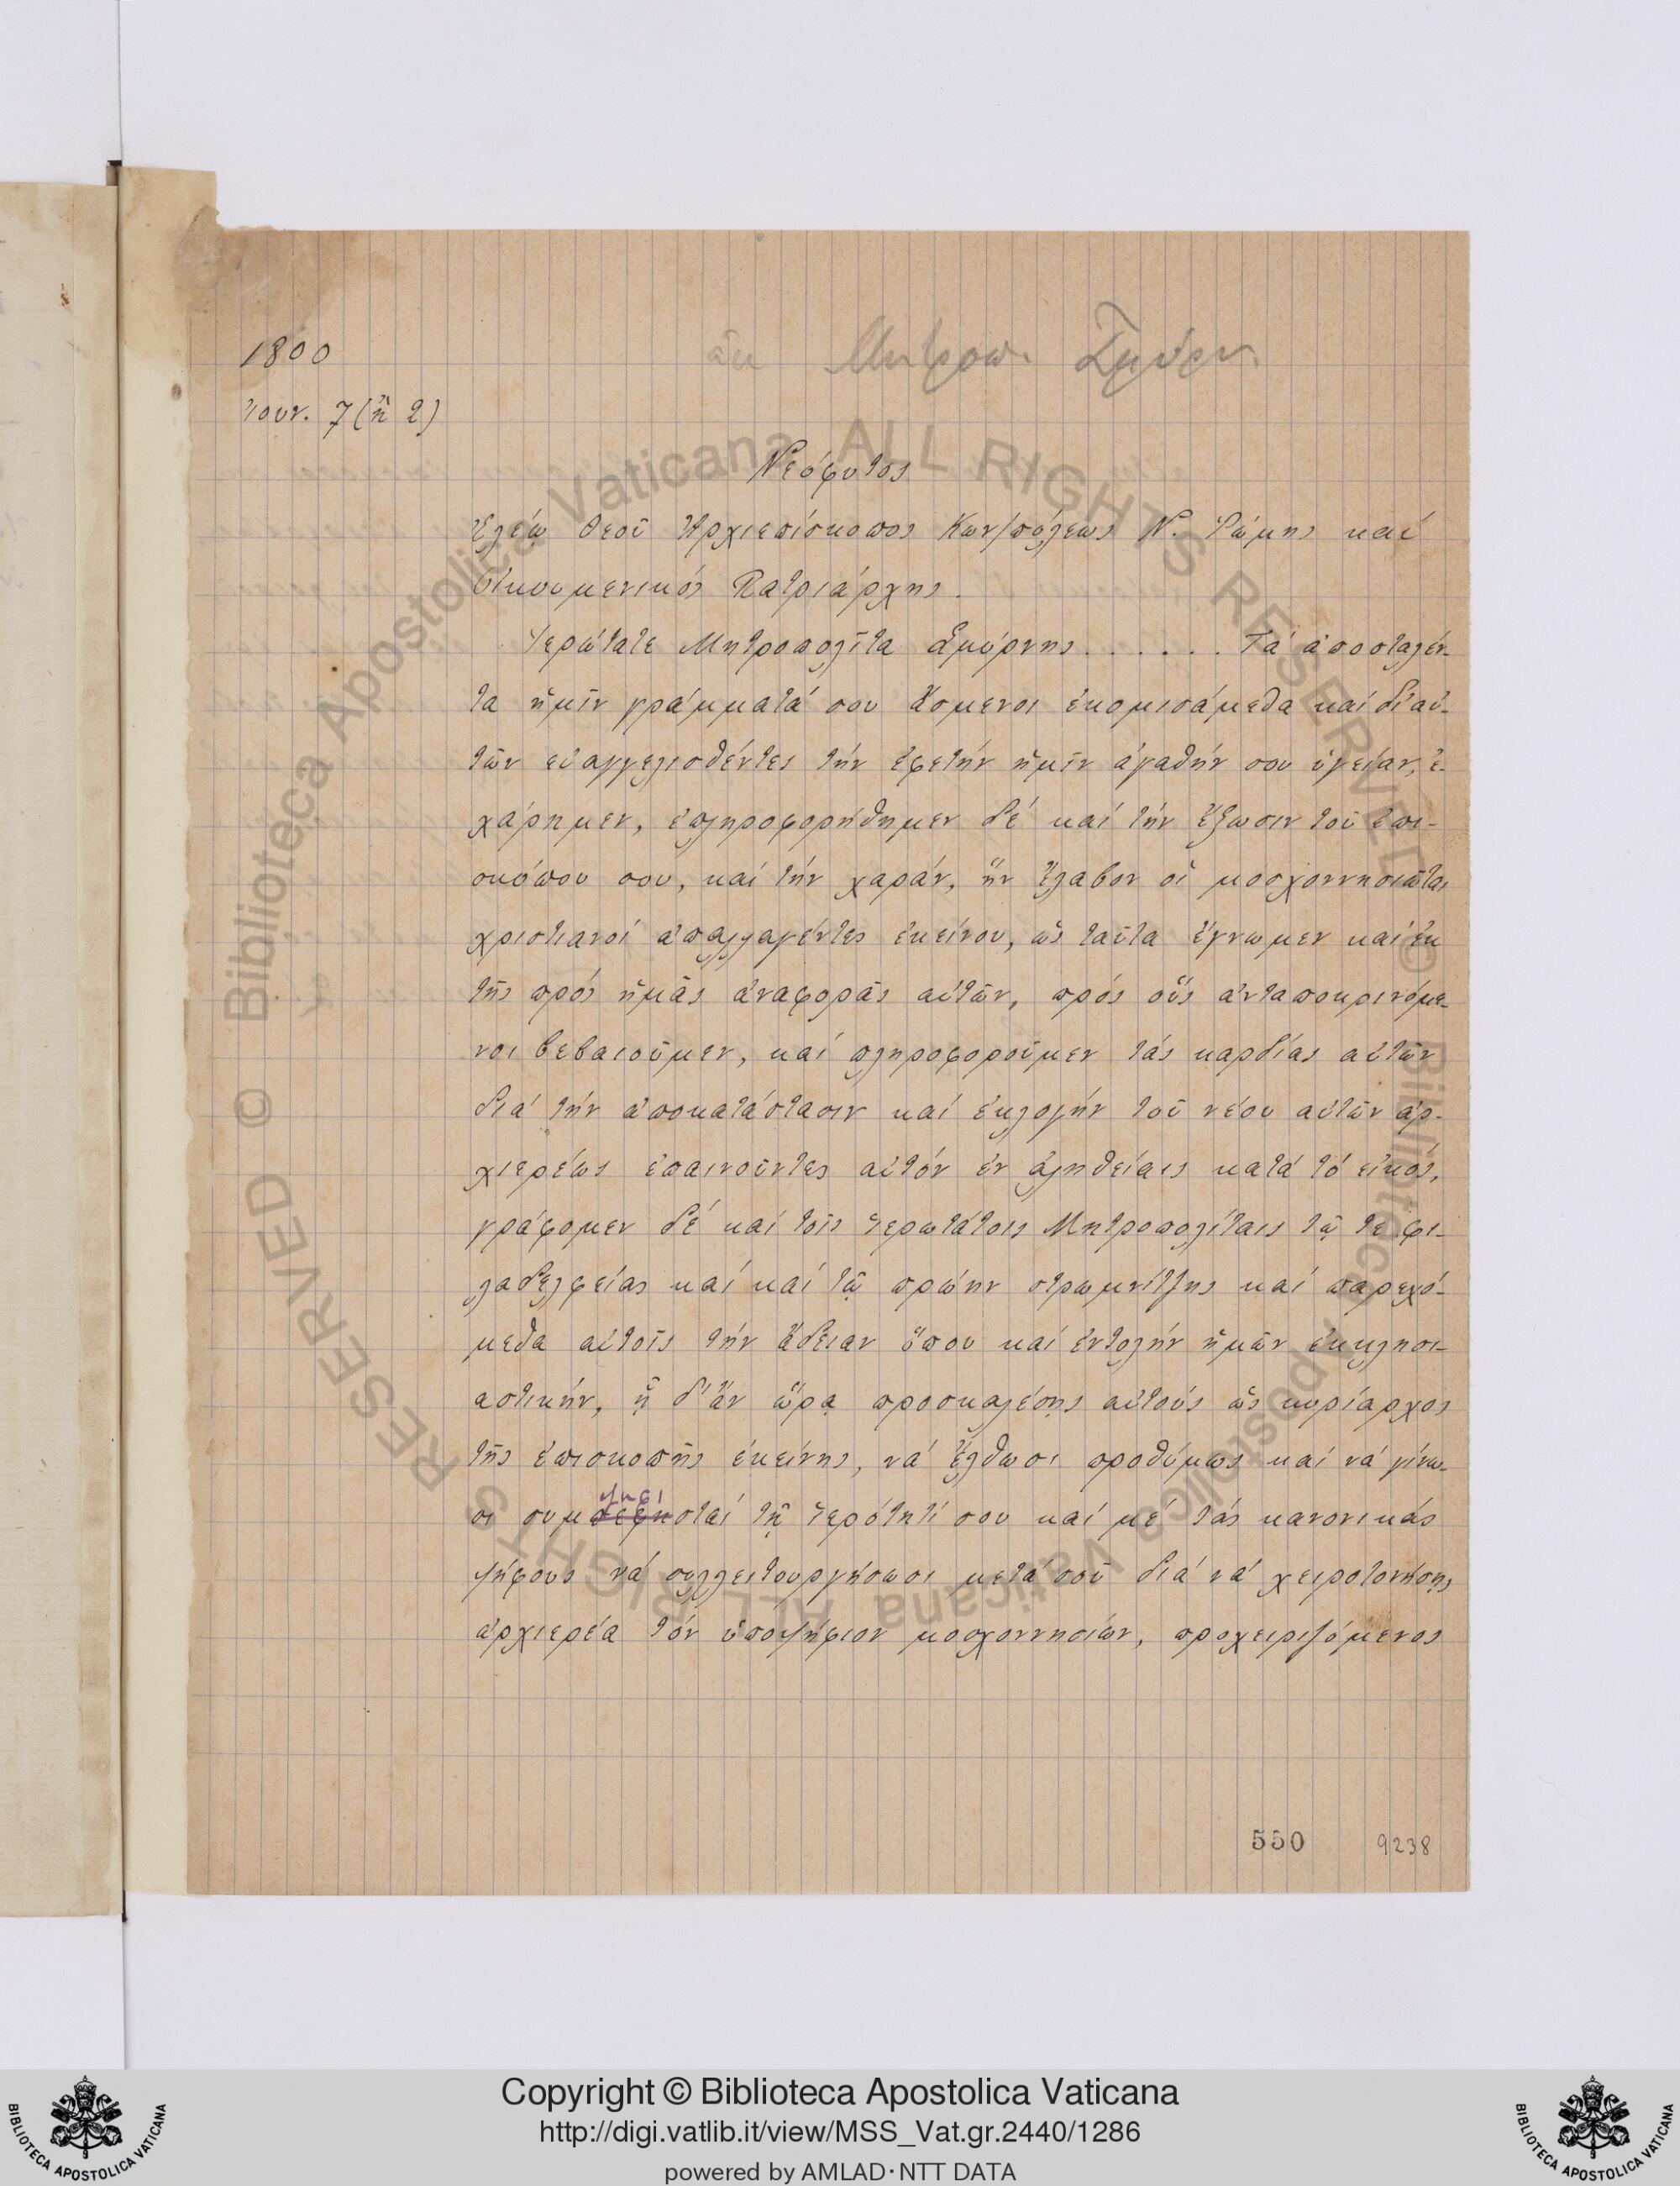 1800
Ἰουν. 7 (ἢ 2)
Μητροπ. Σμύρν.
Νεόφυτος
Ἐλέῳ Θεοῦ Ἀρχιεπίσκοπος Κων/πόλεως Ν. Ῥώμης καί
Οἰκουμενικός Πατριάρχης.
Ἱερώτατε Μητροπολῖτα Σμύρνης . . . . . . Τά ἀποσταλέν-
τα ἡμῖν γράμματά σου ἄσμενοι ἐκομισάμεθα καί δι' αὐ-
τῶν εὐαγγελισθέντες τήν ἐφετήν ἡμῖν ἀγαθήν σου ὑγείαν, ἐ-
χάρημεν, ἐπληροφορήθημεν δέ καί τήν ἔξωσιν τοῦ ἐπι-
σκόπου σου, καί τήν χαράν, ἥν ἔλαβον οἱ μοσχοννησιῶται
χριστιανοί ἀπαλλαγέντες ἐκείνου, ὡς ταῦτα ἔγνωμεν καί ἐκ
τῆς πρός ἡμᾶς ἀναφορᾶς αὐτῶν, πρός οὕς ἀνταποκρινόμε-
νοι βεβαιοῦμεν, καί πληροφοροῦμεν τάς καρδίας αὐτῶν
διά τήν ἀποκατάστασιν καί ἐκλογήν τοῦ νέου αὐτῶν ἀρ-
χιερέως ἐπαινοῦντες αὐτόν ἐν ἀληθείαις κατά τό εἰκός,
γράφομεν δέ καί τοῖς ἱερωτάτοις Μητροπολίταις τῷ τε φι-
λαδελφείας καί καί τῷ πρώην στρωμνίτζης καί παρεχό-
μεθα αὐτοῖς τήν ἄδειαν ὅπου καί ἐντολήν ἡμῶν ἐκκλησι-
αστικήν, ᾗ δ' ἄν ὥρᾳ προσκαλέσῃς αὐτούς ὡς κυρίαρχος
τῆς ἐπισκοπῆς ἐκείνης, νά ἔλθωσι προθύμως καί νά γίνω-
σι συμψηφισταί τῇ ἱερότητί σου καί μέ τάς κανονικάς
ψήφους νά συλλειτουργήσωσι μετά σοῦ διά νά χειροτονήσῃς
ἀρχιερέα τόν ὑποψήφιον μοσχοννησιών, προχειριζόμενος
550 9238
© Biblioteca Apostolica Vaticana ALL RIGHTS RESERVED © Biblioteca Apostolica Vaticana ALL RIGHTS RESERVED
Copyright © Biblioteca Apostolica Vaticana
http://digi.vatlib.it/view/MSS_Vat.gr.2440/1286
powered by AMLAD·NTT DATA
BIBLIOTECA APOSTOLICA VATICANA
BIBLIOTECA APOSTOLICA VATICANA